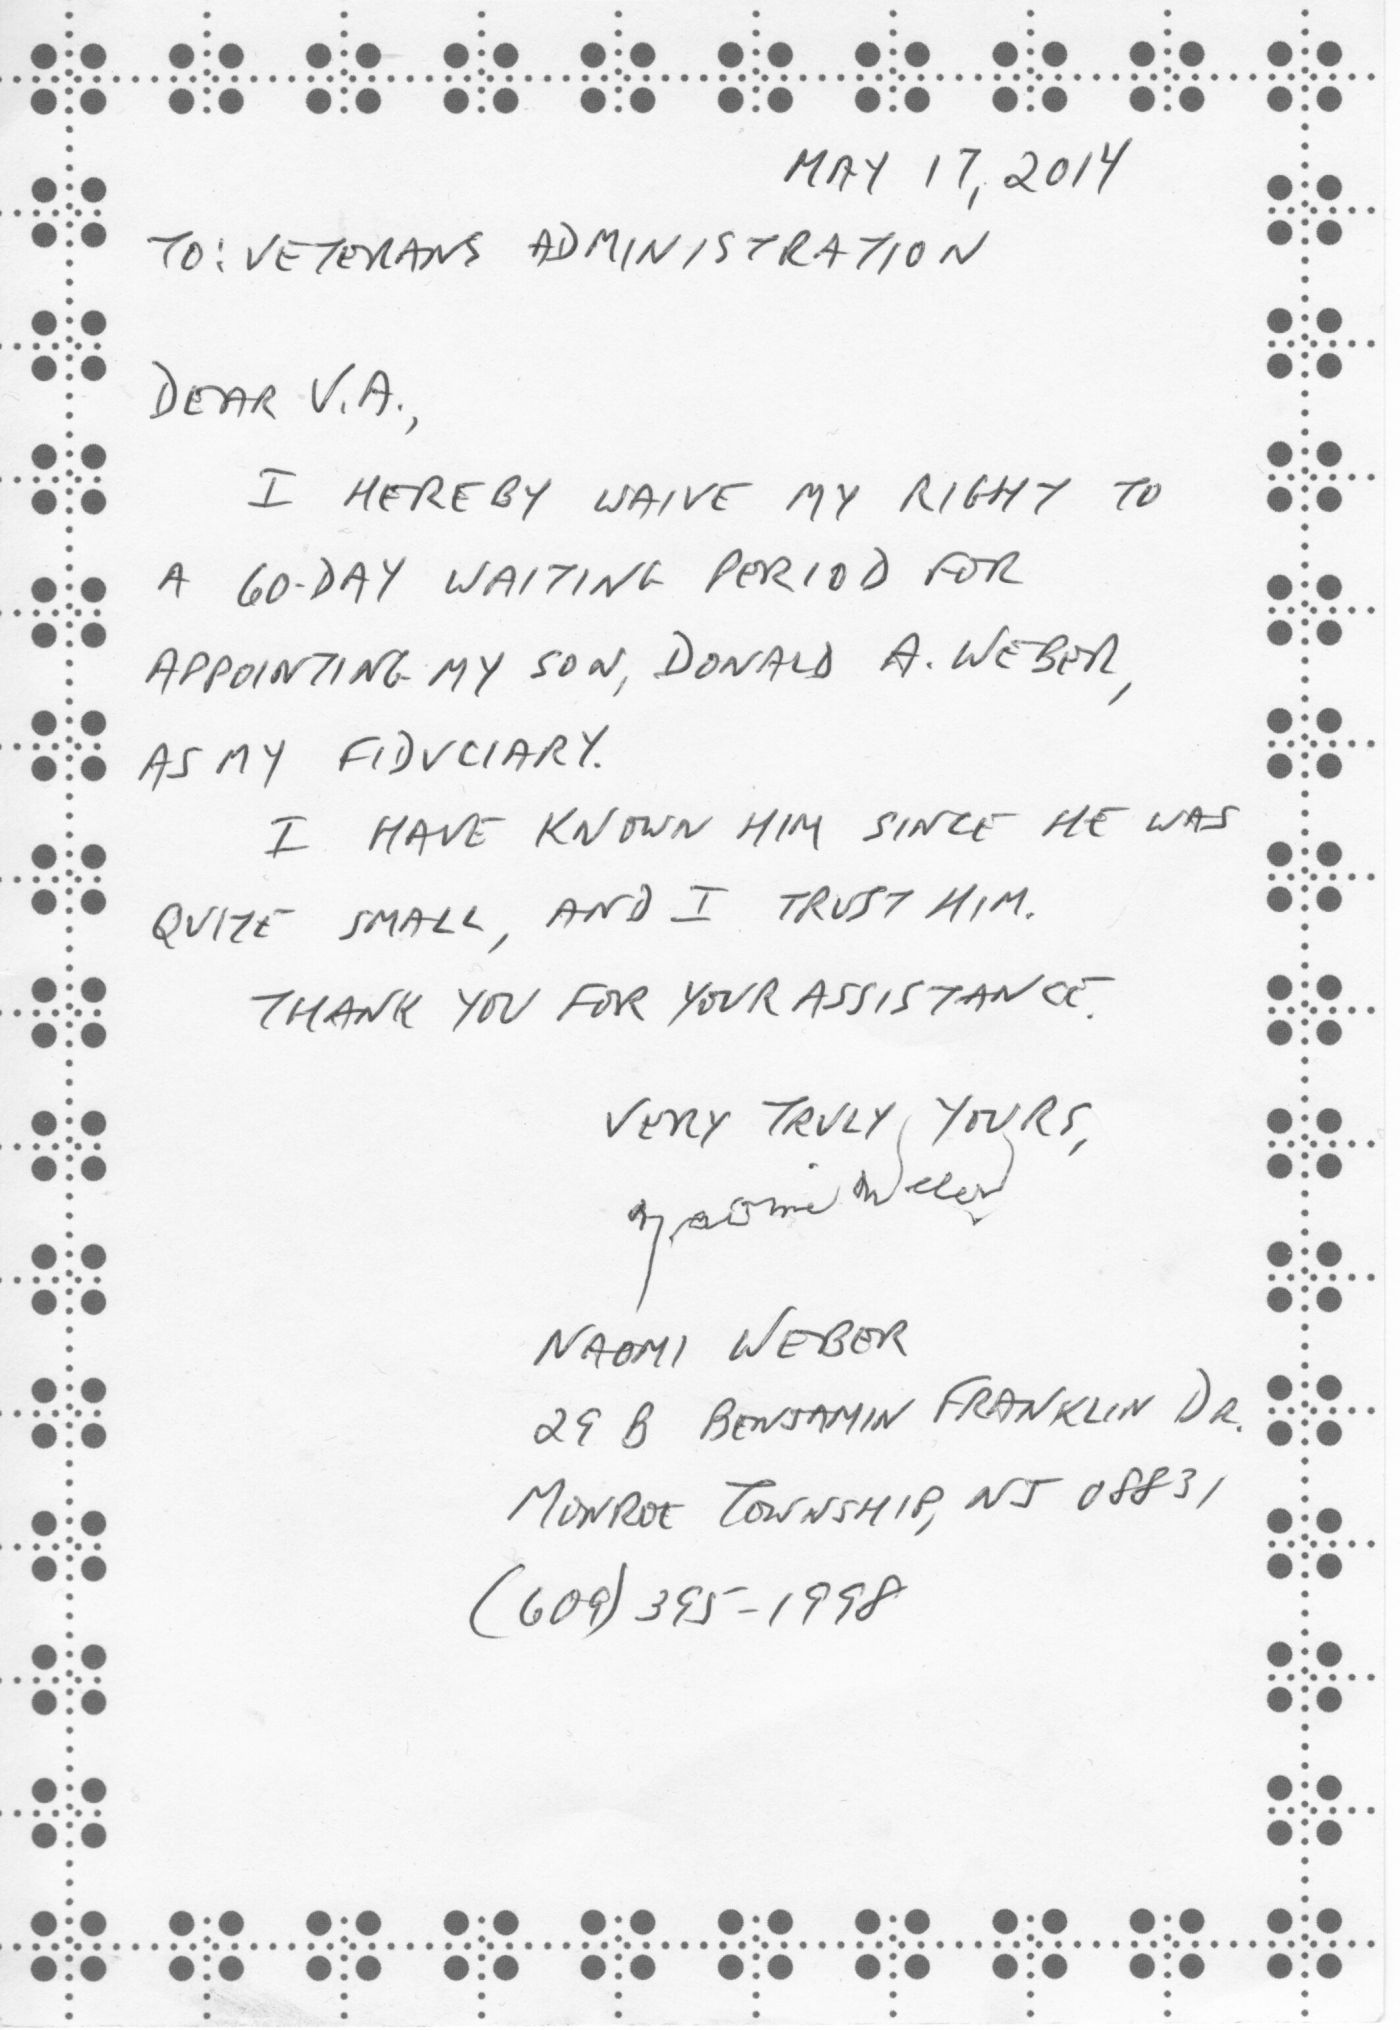 MAY 17, 2014
TO: VETERANS ADMINISTRATION
DEAR V.A.,
I HEREBY WAIVE MY RIGHT TO
A 60-DAY WAITING PERIOD FOR
APPOINTING MY SON, DONALD A. WEBER,
AS MY FIDUCIARY.
I HAVE KNOWN HIM SINCE HE WAS
QUITE SMALL, AND I TRUST HIM.
THANK YOU FOR YOUR ASSISTANCE.
VERY TRULY YOURS,
Naomi Weber
NAOMI WEBER
29 B BENJAMIN FRANKLIN DR.
MONROE TOWNSHIP, NJ 08831
(609) 395-1998